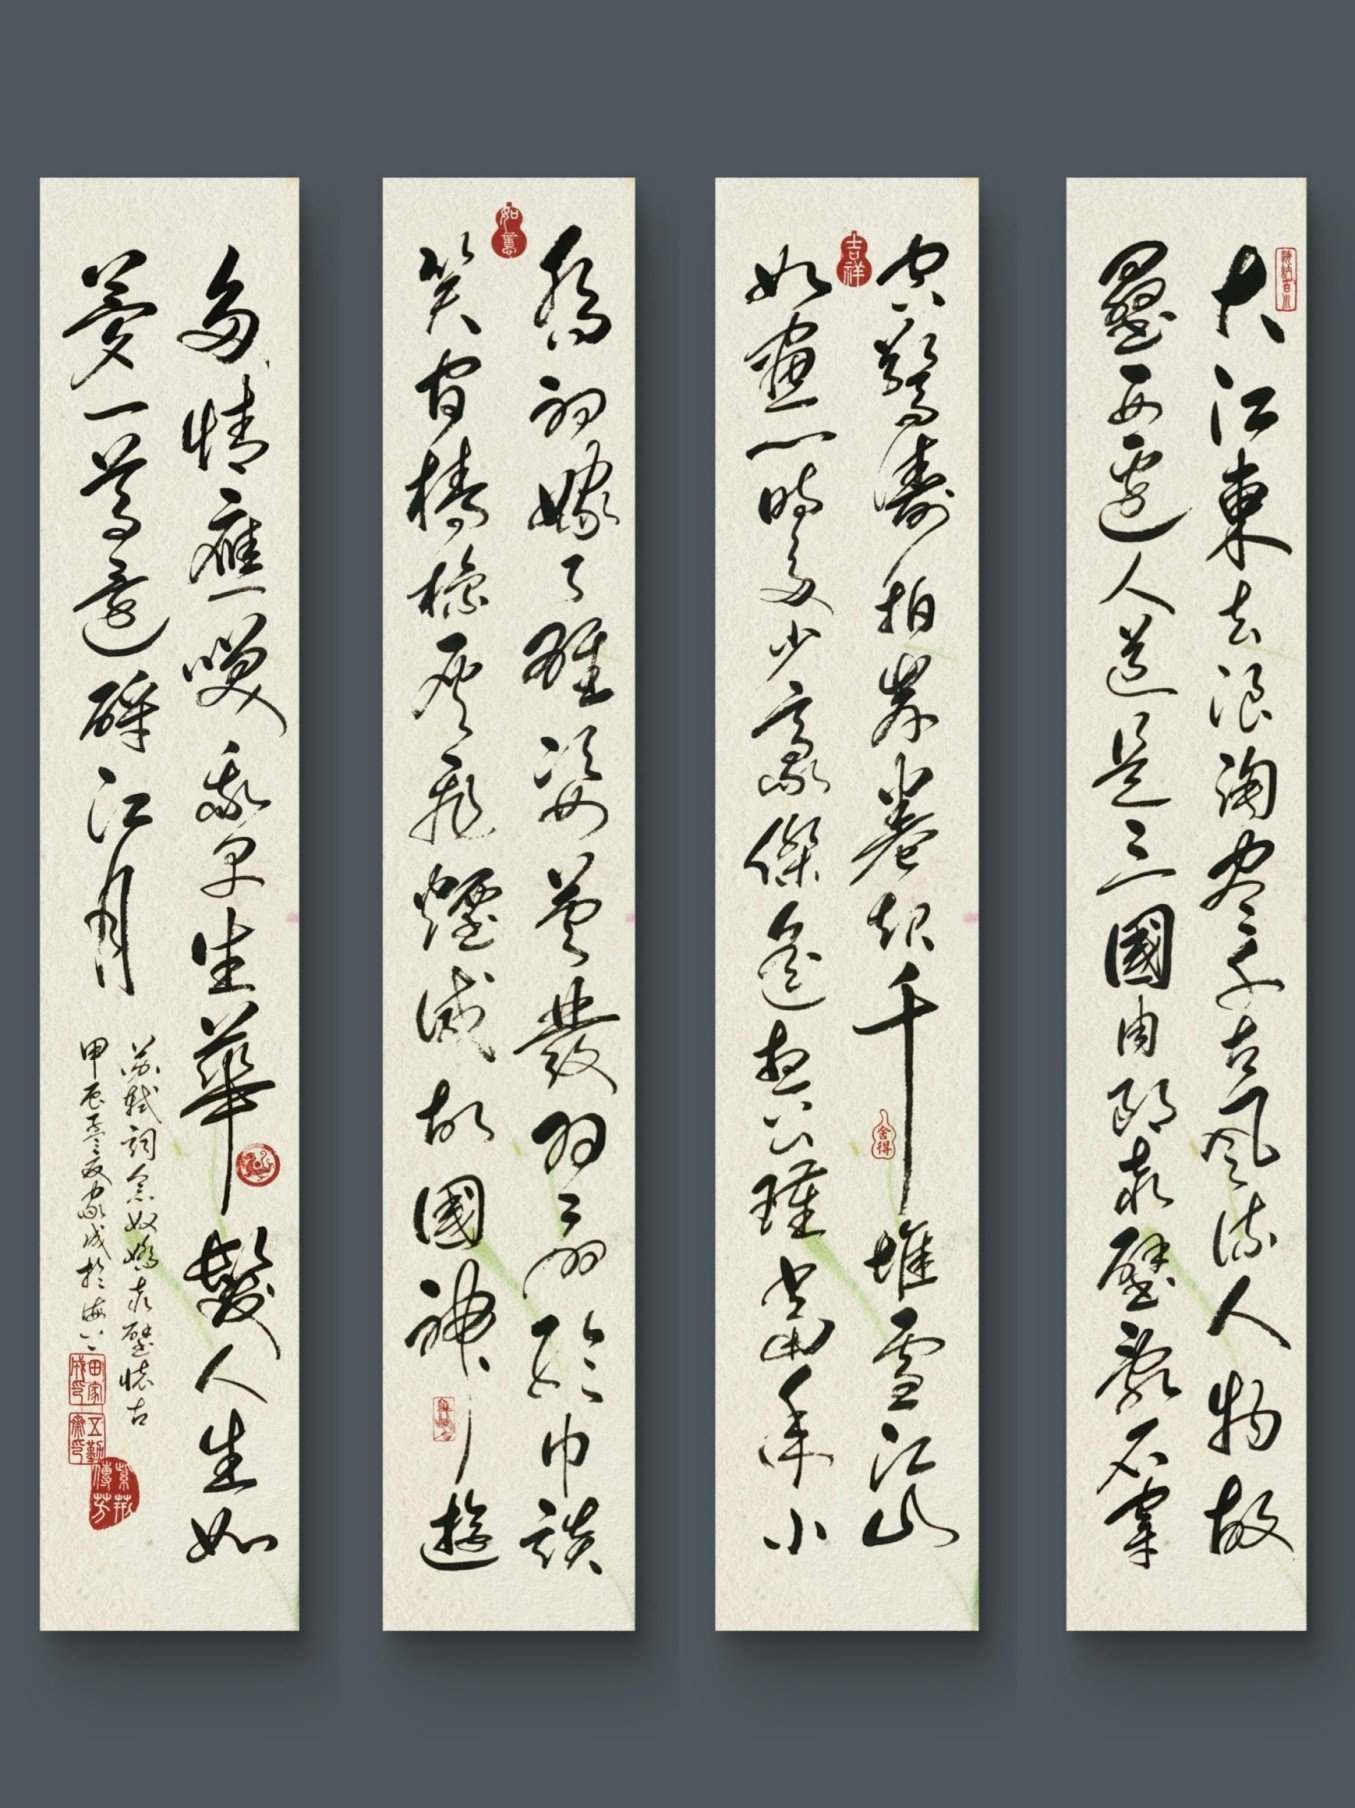 大江東去浪淘盡千古風流人物故
壘西邊人道是三國周郎赤壁亂石穿
空驚濤拍岸卷起千堆雪江山
如畫一時多少豪傑遙想公瑾當年小
喬初嫁了雄姿英發羽扇綸巾談
笑間檣櫓灰飛煙滅故國神遊
多情應笑我早生華髮人生如
夢一尊還酹江月
蘇軾詞念奴嬌赤壁懷古
甲辰冬家成於海上
吉祥
舍得
如意
田家成印
五勤齋印
紫荊傳芳